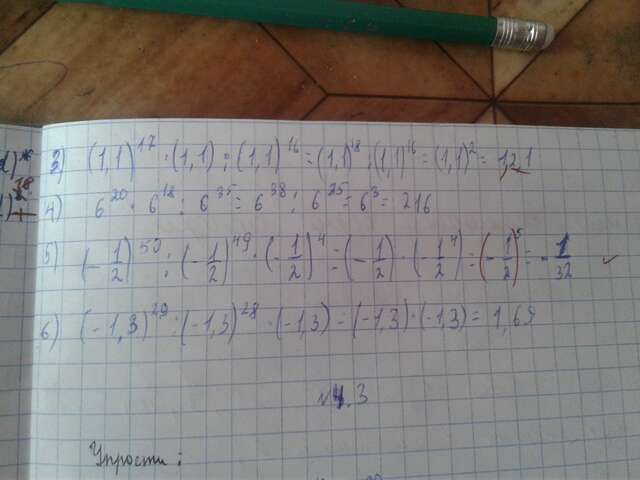 2) (1,1)^17 · (1,1) : (1,1)^16 = (1,1)^18 : (1,1)^16 = (1,1)^2 = 1,21
4) 6^20 · 6^18 : 6^35 = 6^38 : 6^35 = 6^3 = 216
5) (-1/2)^50 : (-1/2)^49 · (-1/2)^4 = (-1/2) · (-1/2)^4 = (-1/2)^5 = -1/32
6) (-1,3)^29 : (-1,3)^28 · (-1,3) = (-1,3) · (-1,3) = 1,69
№4.3
Упрости: